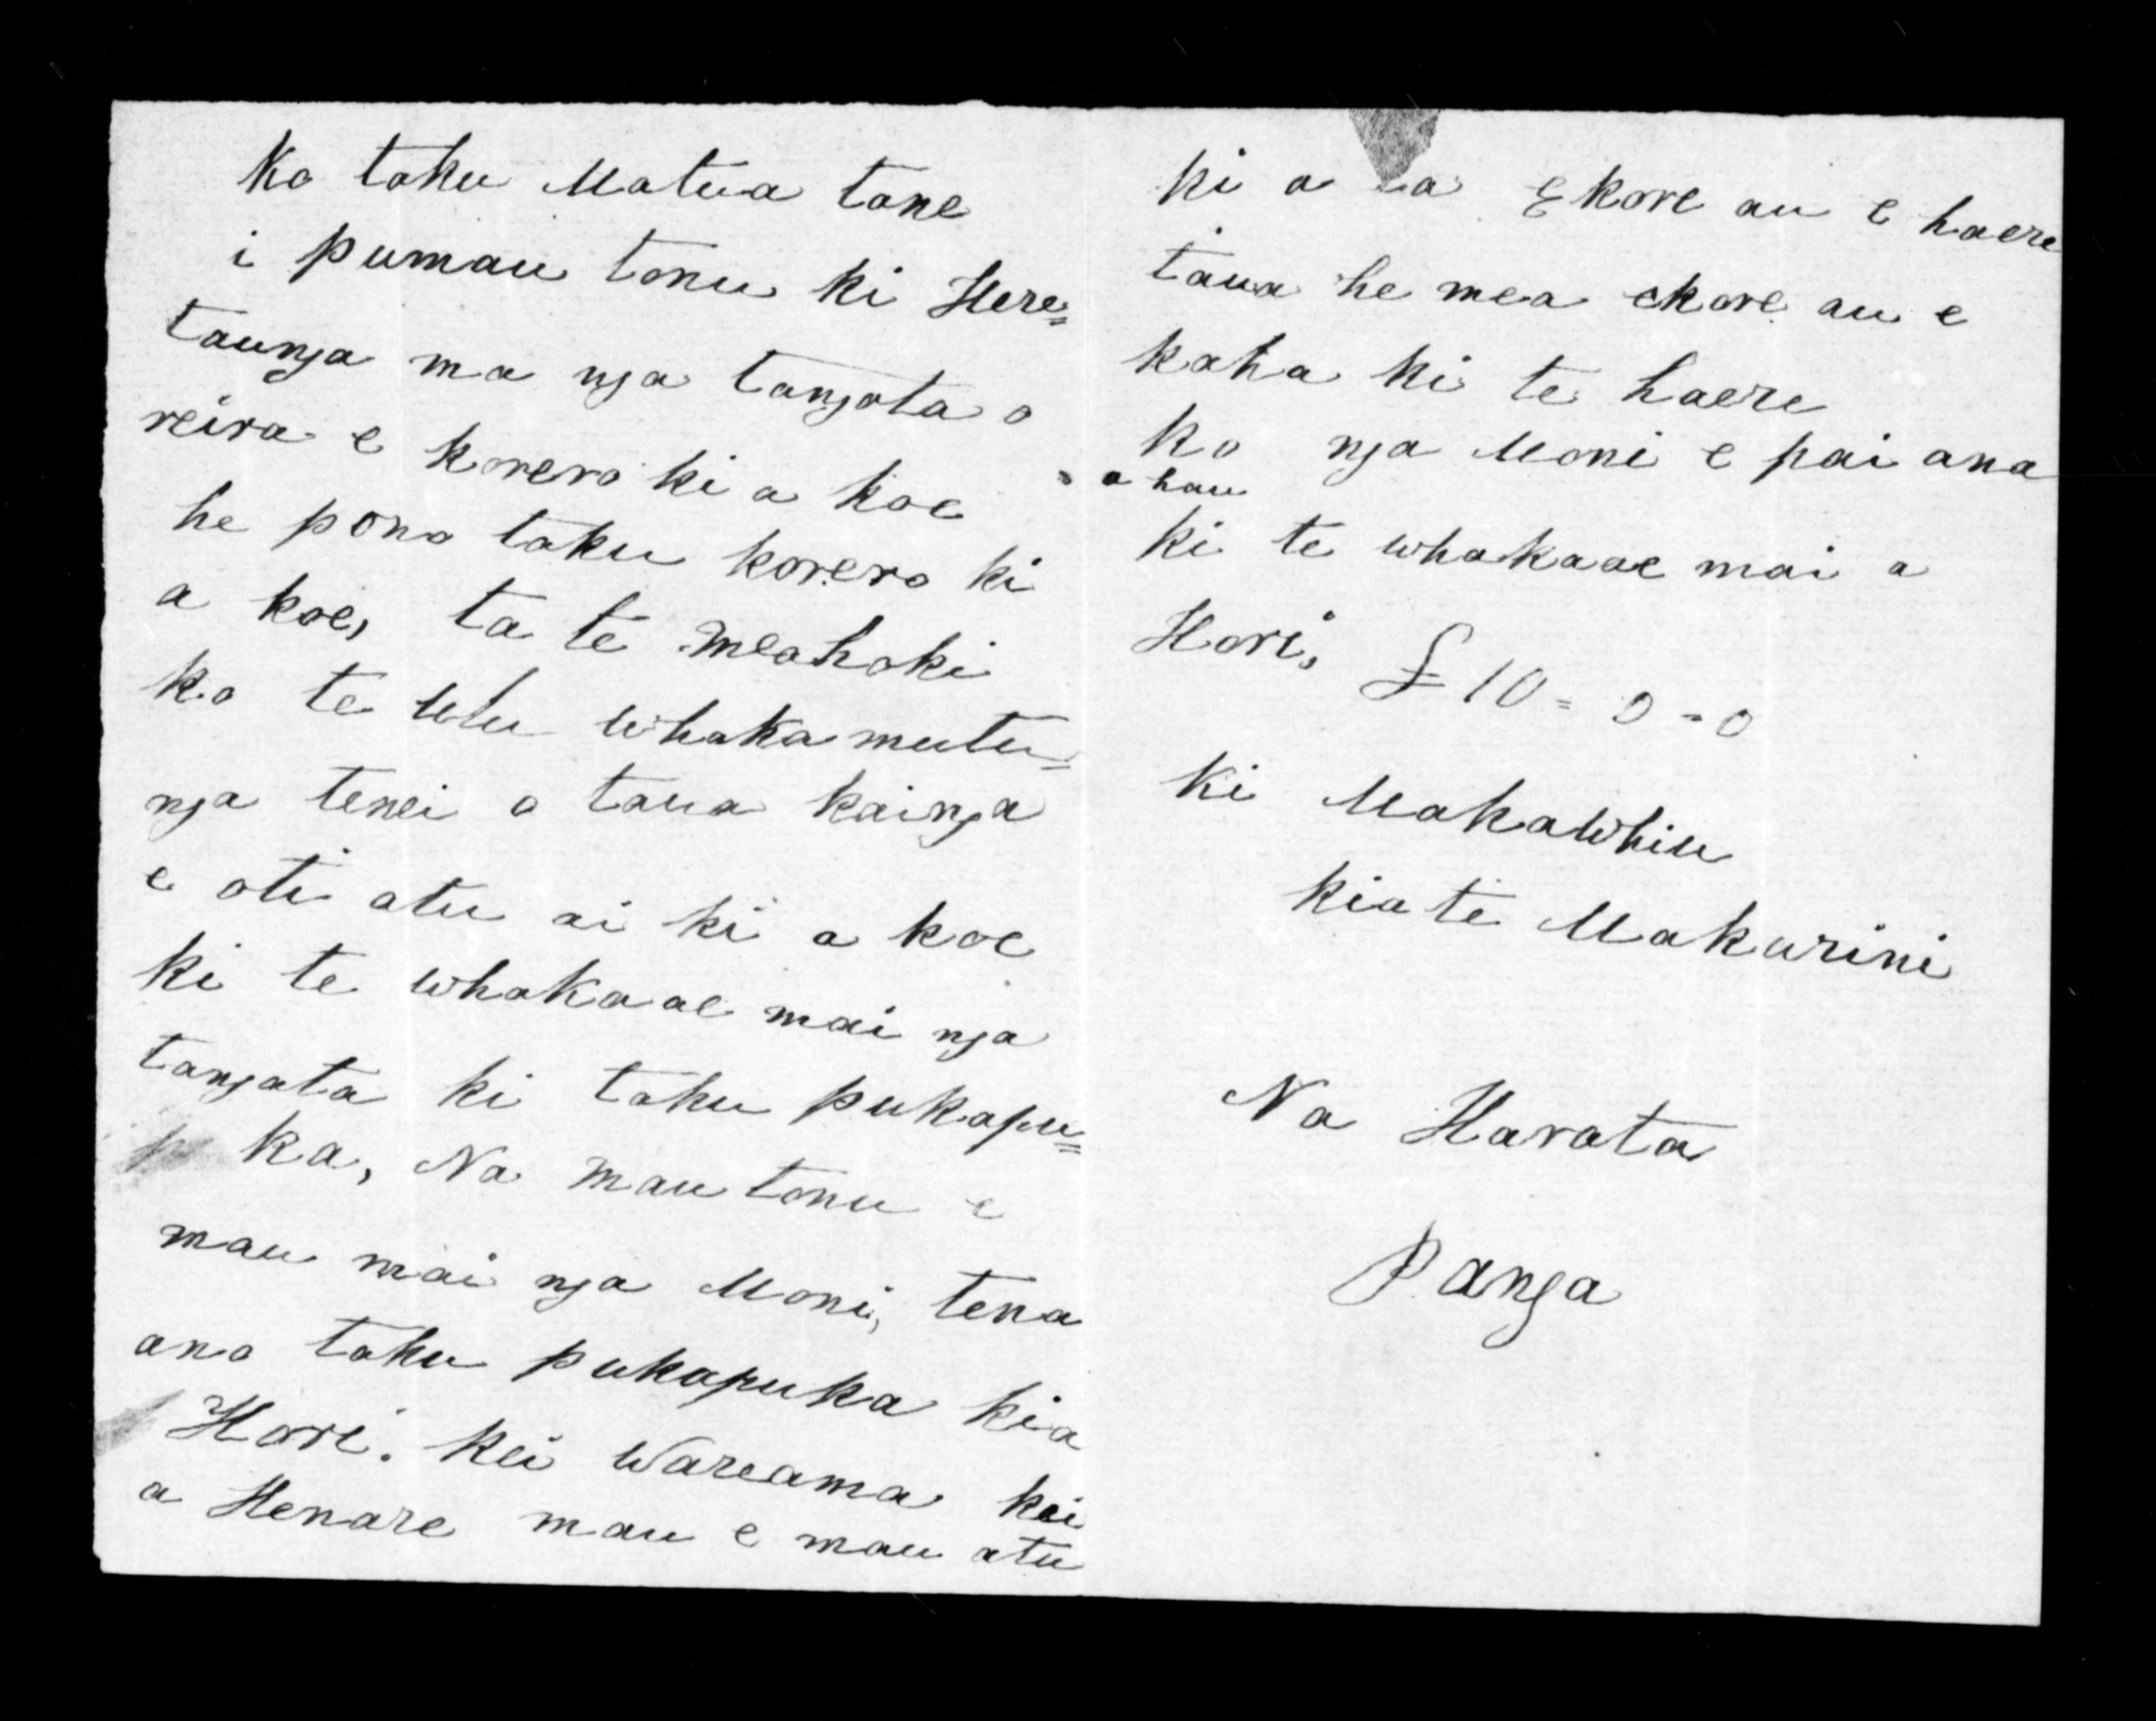 Ko toku Matua tane
i pumau tonu ki Here=
taunga ma nga tangata o
reira e korero ki a koe
he pono taku korero ki
a koe, ta te meahoki
ko te utu whakamutu=
nga tenei o taua kainga
e oti atu ai ki a koe
ki te whakaae mai nga
tangata ki taku pukapu=
ka, Na mau tonu e
mau mai nga Moni, tena
ano taku pukapuka kia
Hori. kei Wareama kei
a Henare mau e mau atu
ki a ia Ekore au e haere
taua he mea ekore au e
kaha ki te haere
ko nga Moni e pai ana
ahau
ki te whakaae mai a
Hori, £10=0=0
Ki Makawhiu
kia te Makarini
Na Harata
Panga